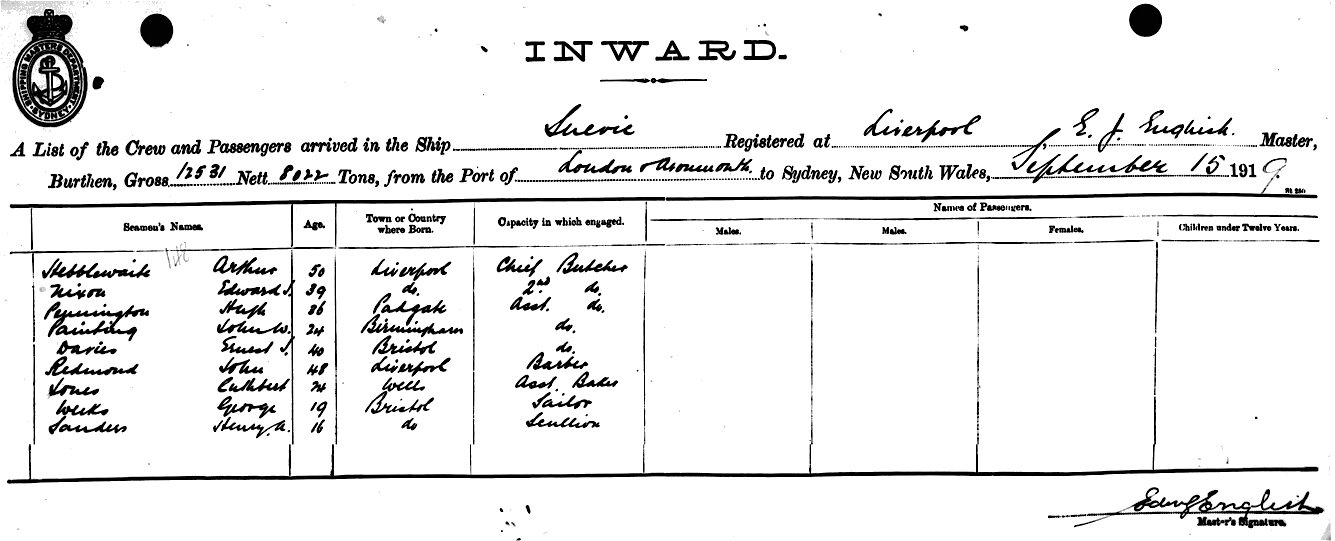 SHIPPING MASTERS DEPARTMENT SYDNEY
INWARD.
A List of the Crew and Passengers arrived in the Ship Suevic Registered at Liverpool, E. J. English. Master,
Burthen, Gross 12531 Nett 8022 Tons, from the Port of London & Avonmouth. to Sydney, New South Wales, September 15 1919
Names of Passengers.
Seamen's Names. Age. Town or Country where Born. Capacity in which engaged. Males. Males. Females. Children under Twelve Years.
Hebblewaite Arthur 50 Liverpool Chief Butcher
Nixon Edward J. 39 do. 2nd do.
Pennington Hugh 36 Padgate Asst. do.
Painting John W. 24 Birmingham do.
Davies Ernest J. 40 Bristol do.
Redmond John 48 Liverpool Barber
Jones Cuthbert 24 Wells Asst. Baker
Weeks George 19 Bristol Sailor
Sanders Henry A. 16 do Scullion
Edw J English
Master's Signature.